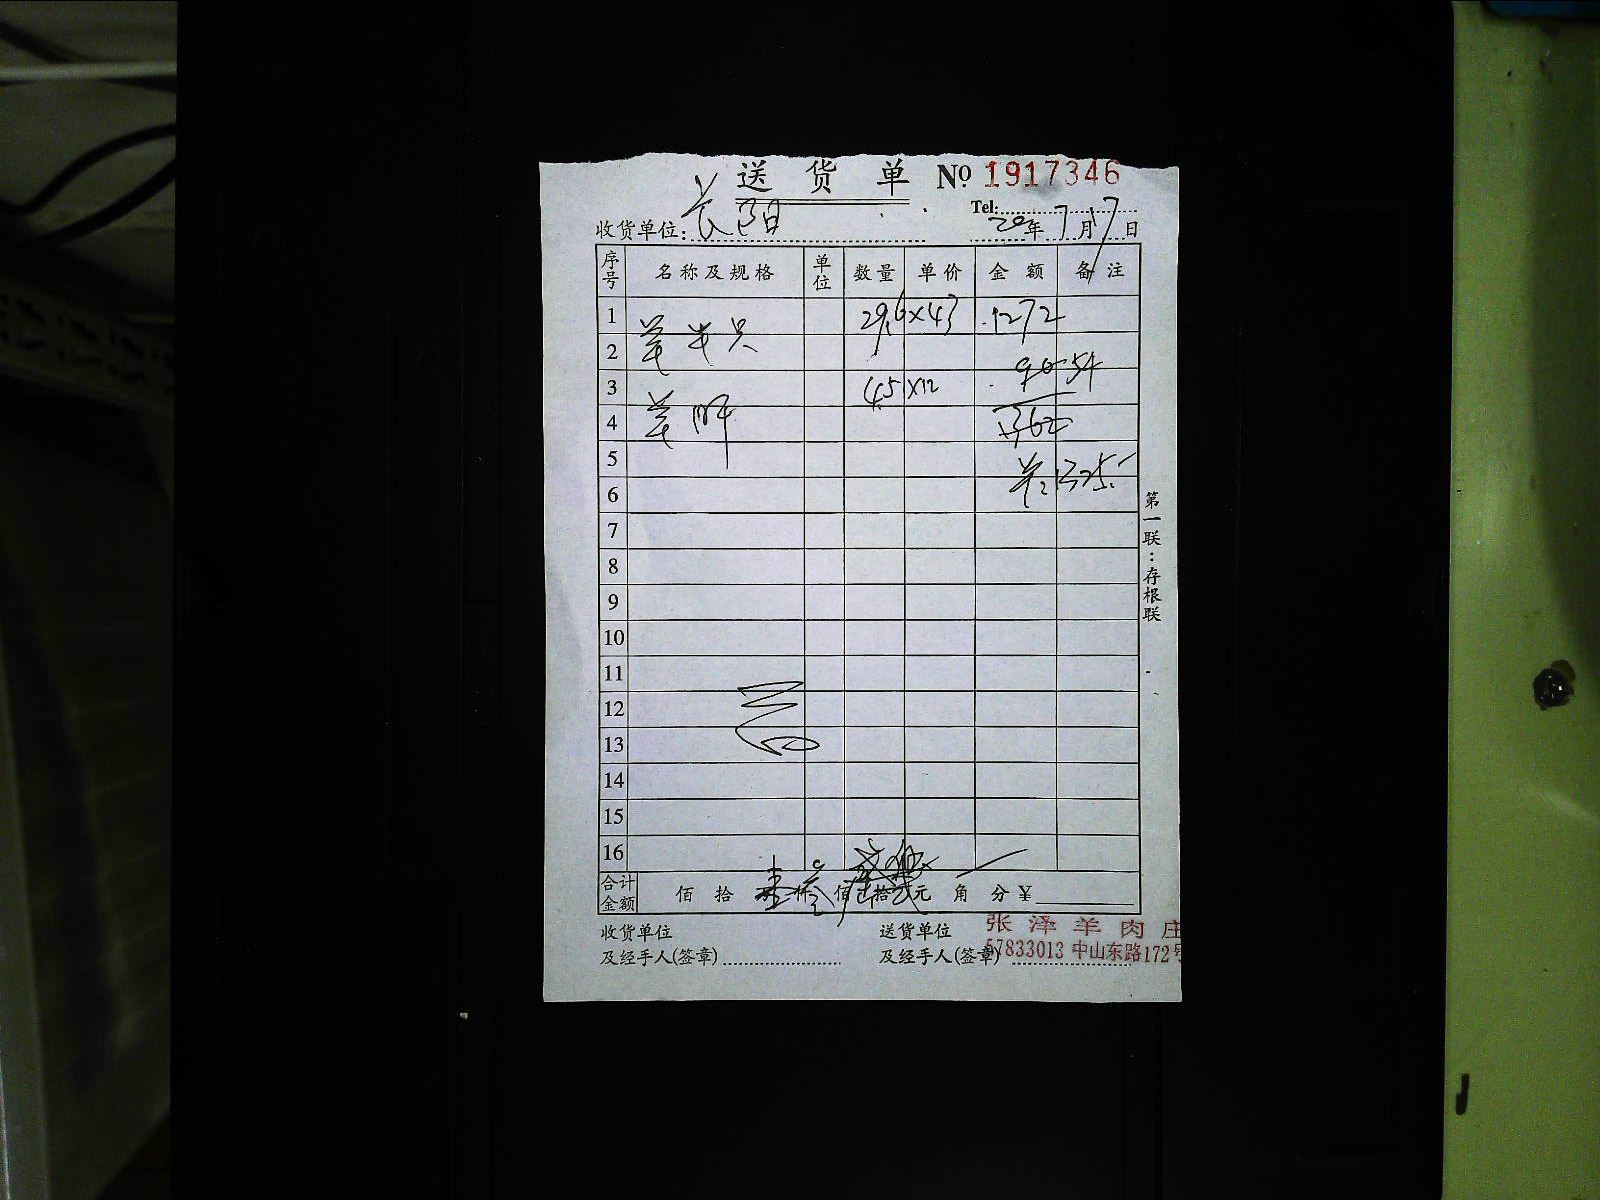 送货单 № 1917346
Tel:
收货单位: 长阳 20年7月17日
序号 名称及规格 单位 数量 单价 金额 备注
1 29.6×43 1272
2 羊
3 4.5×12 54
4 羊
5
6 1325
7
8
9
10
11
12
13
14
15
16
合计金额 佰 拾 仟 佰 拾 元 角 分 ¥
收货单位 送货单位 张泽羊肉庄
及经手人(签章) 及经手人(签章) 57833013 中山东路172号
第一联:存根联